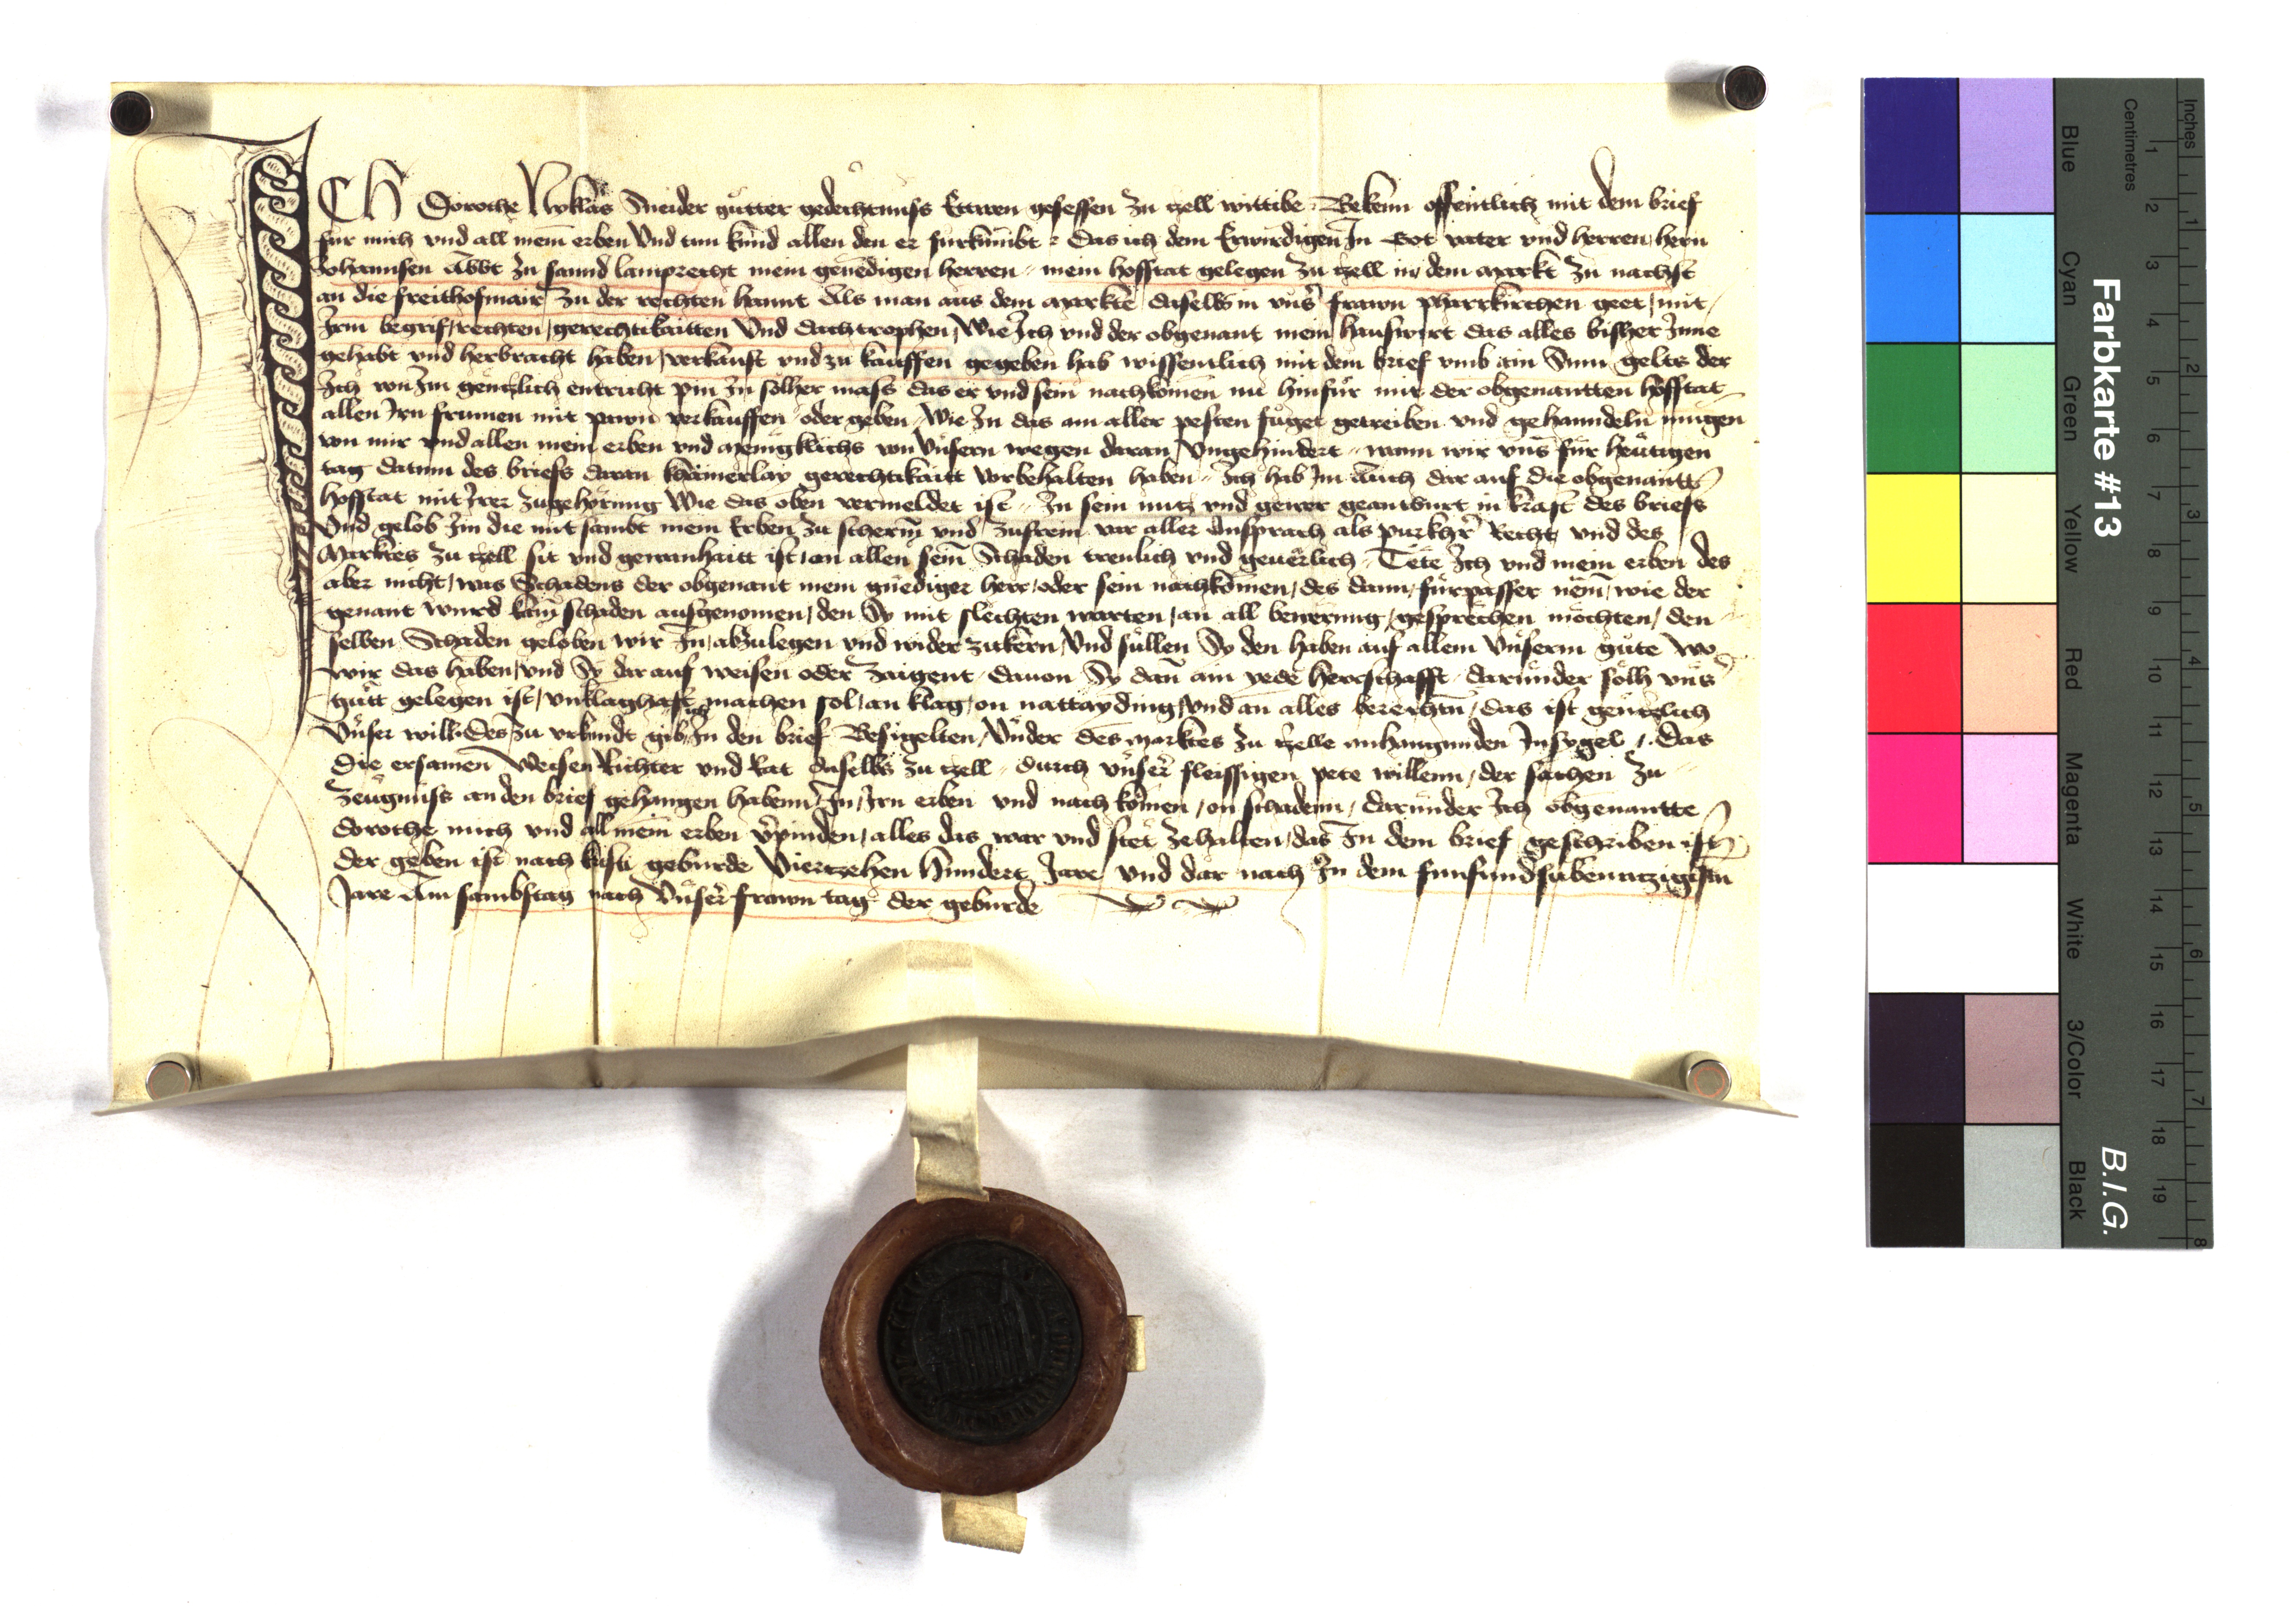 ICH Dorothe Nyklas Sneider gutter gedechtnuss Ettwen gesessen zu tzell wittibe Bekenn offentlich mit dem brief
fur mich vnd all mein erben Vnd tun kund allen den er furkumbt Das ich dem Erwirdigen In Got vater vnd herren hern
Johannsen Abbt zu sannd lamprecht mein genedigen herren mein hofstat gelegen zu tzell in dem Markt zu nachst
an die freithofmair zu der rechten hannt Als man aus dem Markte daselbs in vnser frawn pharrkirchen geet mit
Irm begrif rechten gerechtikaitten Vnd dachtrophen Wie Ich vnd der obgenant mein hauswirt das alles bisher Inne
gehabt vnd herbracht haben verkauft vnd zu kauffen gegeben hab wissentlich mit dem brief vmb ain Sum gelts der
Ich von Im gentzlich entricht pin In solher mass das er vnd sein nachkomen nu hinfur mit der obgenantten hofstat
allen Irn frumen mit pawn verkauffen oder geben Wie In das am aller pesten fuget getreiben vnd gehanndeln mugen
von mir vnd allen mein erben vnd menigklichs von Vnsern wegen daran Vngehindert wann wir vns fur heutigen
tag datum des briefs daran khainerlay gerechtikaitt vorbehalten haben Ich hab Im Auch dar auf die obgenantte
hofstat mit Irer zugehorung Wie das oben vermeldet ist In sein nutz vnd gewer geantwurt in kraft des briefs
Vnd gelob Im die mit sambt mein Erben zu scherm vnd zufrein vor aller Ansprach als purkhr Recht vnd des
Marktes zu tzell sit vnd gewanhaitt ist an allen sein Schaden trewlich vnd geuerlich Tete Ich vnd mein erben des
aber nicht was Schadens der obgenant mein gnediger herr oder sein nachkomen des dann furpasser nem wie der
genant wurd kain schaden ausgenomen den Sy mit slechten worten an all bewerung gesprechen mochten den
selben Schaden geloben wir In abzulegen vnd wider zukern Vnd sullen Sy den haben auf allem Vnserm gute Wo
wir das haben vnd Sy dar auf weisen oder zaigent dauon Sy dan ain yede herrschafft darunder solh vns
gutt gelegen ist vnklaghaftig machen sol an klag on nattayding vnd an alles berechtn das ist gentzlich
Vnser will Des zu vrkundt gib In den brief Besigelten Vnder des Marktes zu tzelle anhangunden Insygel Das
die ersamen Weisen Richter vnd Rat daselbs zu tzell durch vnser fleissigen pete willenn der sachen zu
zeugnuss an den brief gehangen habenn In Irn erben vnd nach komen on schadenn darunder Ich obgenantte
dorothe mich vnd all mein erben vpinden alles das war vnd stet zehalten das In dem brief geschriben ist
der geben ist nach kristi geburde Viertzehen Hundert Jare vnd dar nach In dem funfundsibenntzigisten
Jare Am sambstag nach Vnser frawn tag der geburde
Farbkarte #13
B.I.G.
Inches
Centimetres
Blue
Cyan
Green
Yellow
Red
Magenta
White
3/Color
Black
1 2 3 4 5 6 7 8 9 10 11 12 13 14 15 16 17 18 19
1 2 3 4 5 6 7 8